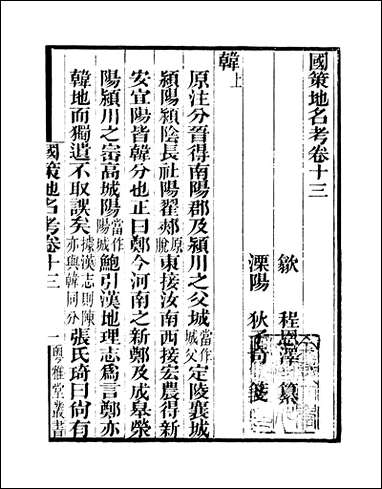 國策地名考卷十三
歙　程恩澤　纂
溧陽　狄子奇　箋
韓上
原注分晉得南陽郡及潁川之父城當作城父定陵襄城
潁陽潁陰長社陽翟郟原脫東接汝南西接宏農得新
安宜陽皆韓分也正曰鄭今河南之新鄭及成皋榮
陽潁川之崈高城陽當作陽城鮑引漢地理志爲言鄭亦
韓地而獨遺不取誤矣據漢志則陳亦與韓同分張氏琦曰尚有
國策地名考卷十三　一　粵雅堂叢書